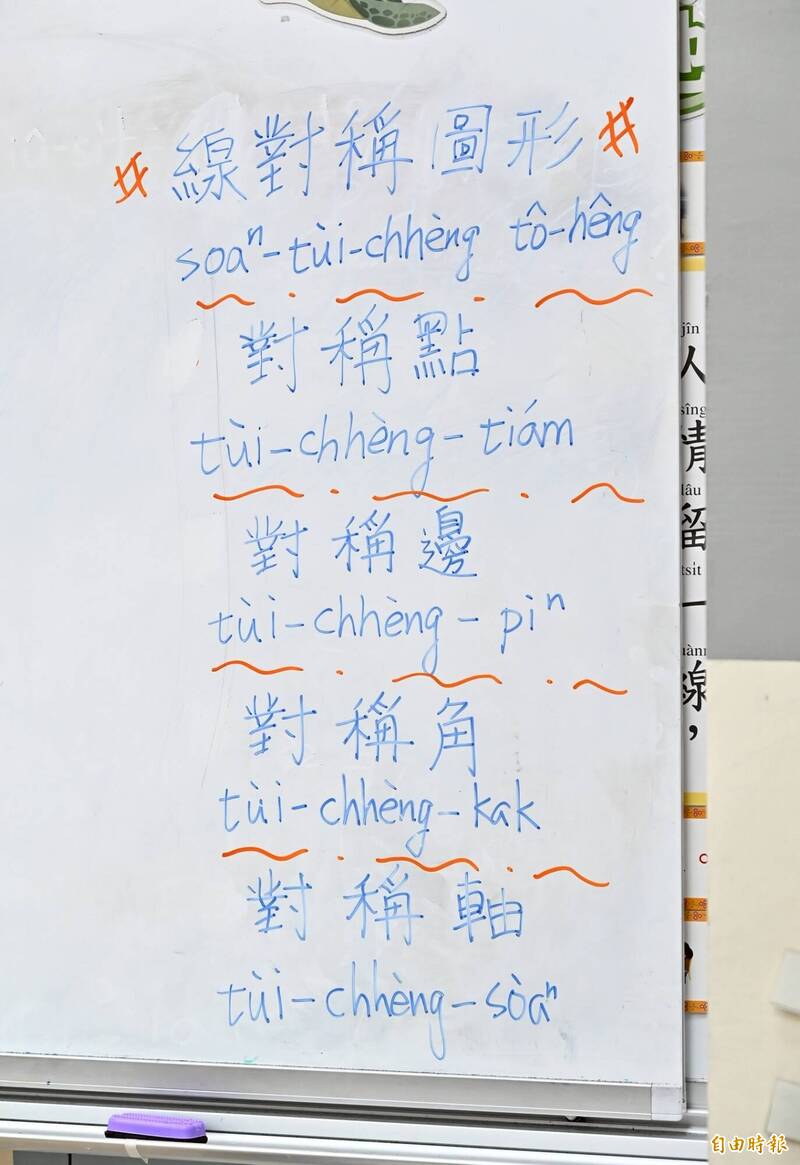 # 線對稱圖形 #
soaⁿ-tùi-chhèng tô-hêng
對稱點
tùi-chhèng-tiám
對稱邊
tùi-chhèng-piⁿ
對稱角
tùi-chhèng-kak
對稱軸
tùi-chhèng-sòaⁿ
jîn
人
sîng
情
lâu
留
tsi̍t
一
uànn
線，
自由時報